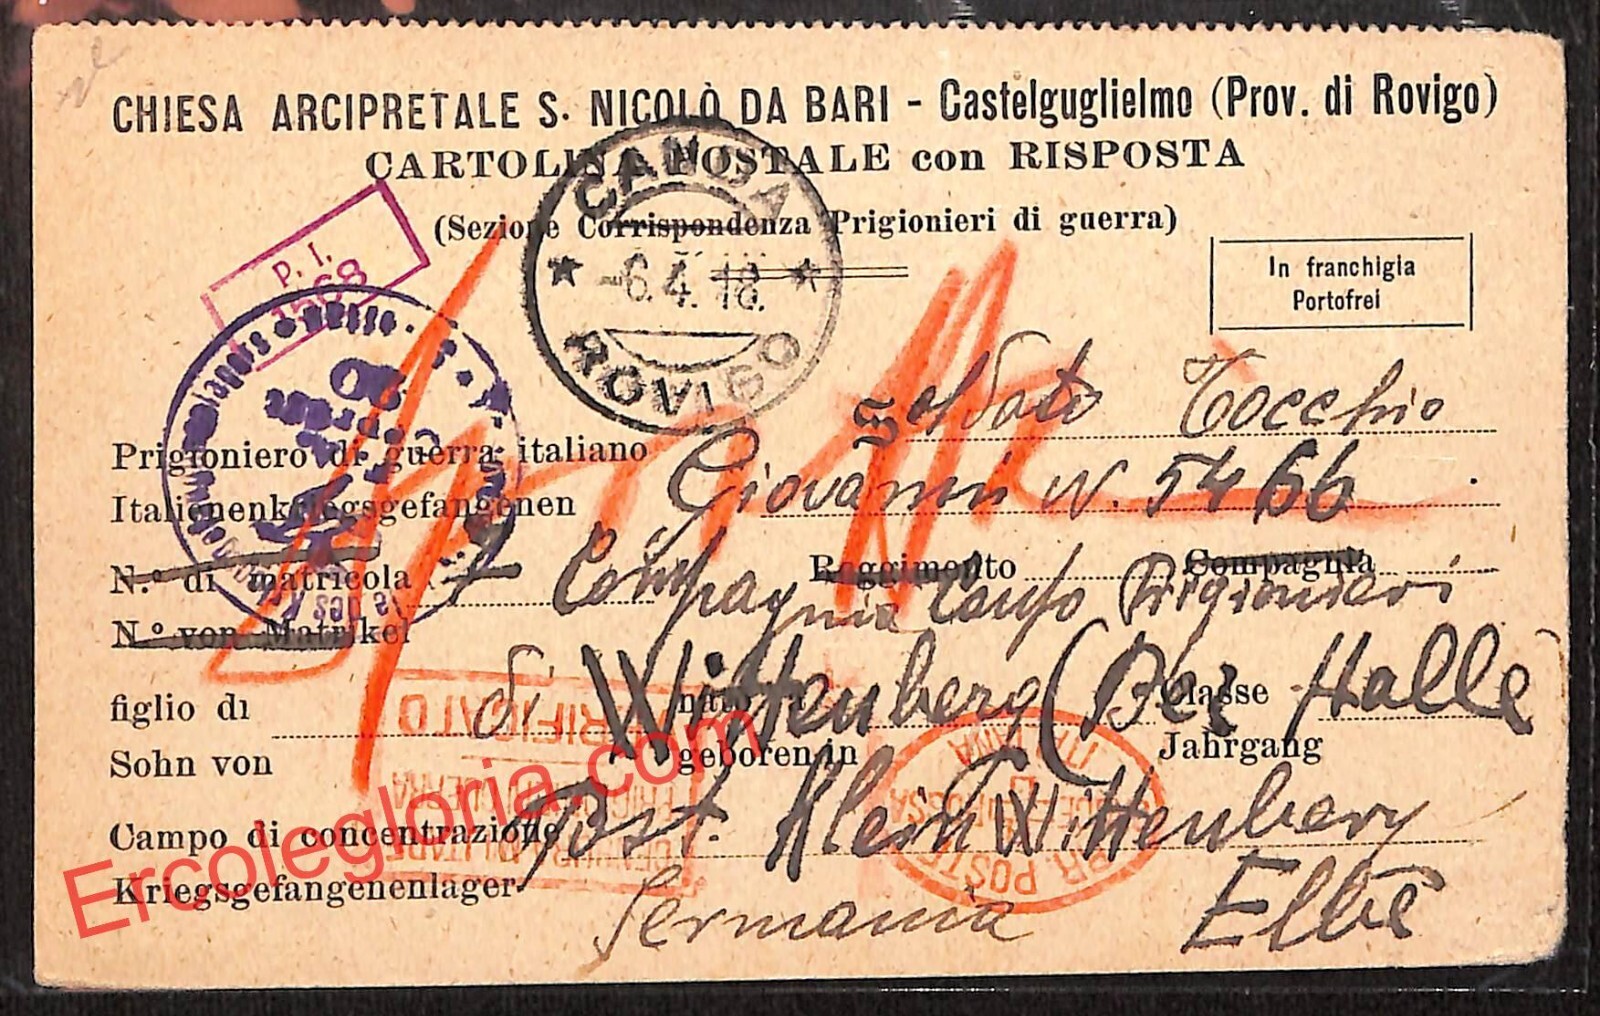 CHIESA ARCIPRETALE S. NICOLÒ DA BARI - Castelguglielmo (Prov. di Rovigo)
CARTOLINA POSTALE con RISPOSTA
(Sezione Corrispondenza Prigionieri di guerra)
CANDA
-6.4.18.
ROVIGO
P. I.
1568
In franchigia
Portofrei
Soldato Tocchio
Prigioniero di guerra italiano
Giovanni N. 5466
Italienenkriegsgefangenen
N.º di matricola
Reggimento
Compagnia
Compagnia Campo Prigionieri
N.º von Matrikel
di Wittenberg (Bei Halle
figlio di
nato a
Classe
Sohn von
geboren in
Jahrgang
VERIFICATO
Campo di concentrazione
Post. Klein Wittenberg
Kriegsgefangenenlager
Germania
Elbe
Ercolegloria.com